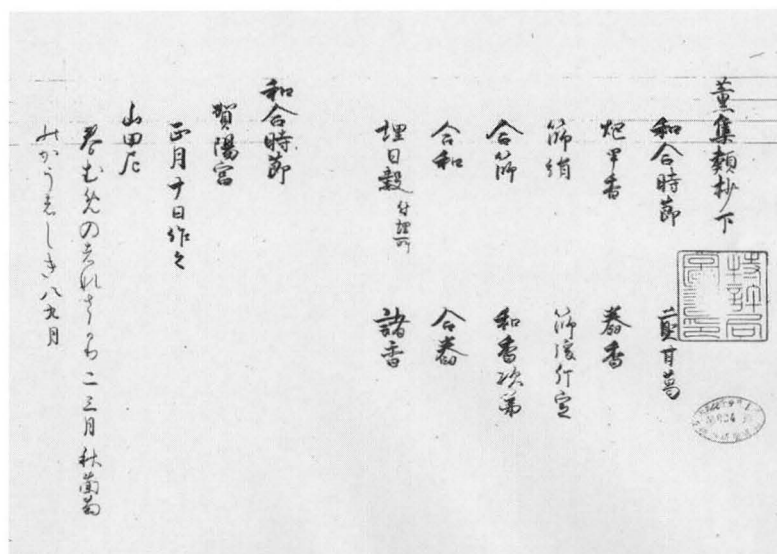 薫集類抄下
和合時節
煎甘葛
炮甲香
舂香
篩絹
篩後斤定
合篩
和香次第
合和
合舂
埋日数 付埋所
諸香
和合時節
賀陽宮
正月十日作之
山田尼
春むめの花さかり二三月秋蘭菊
八九月